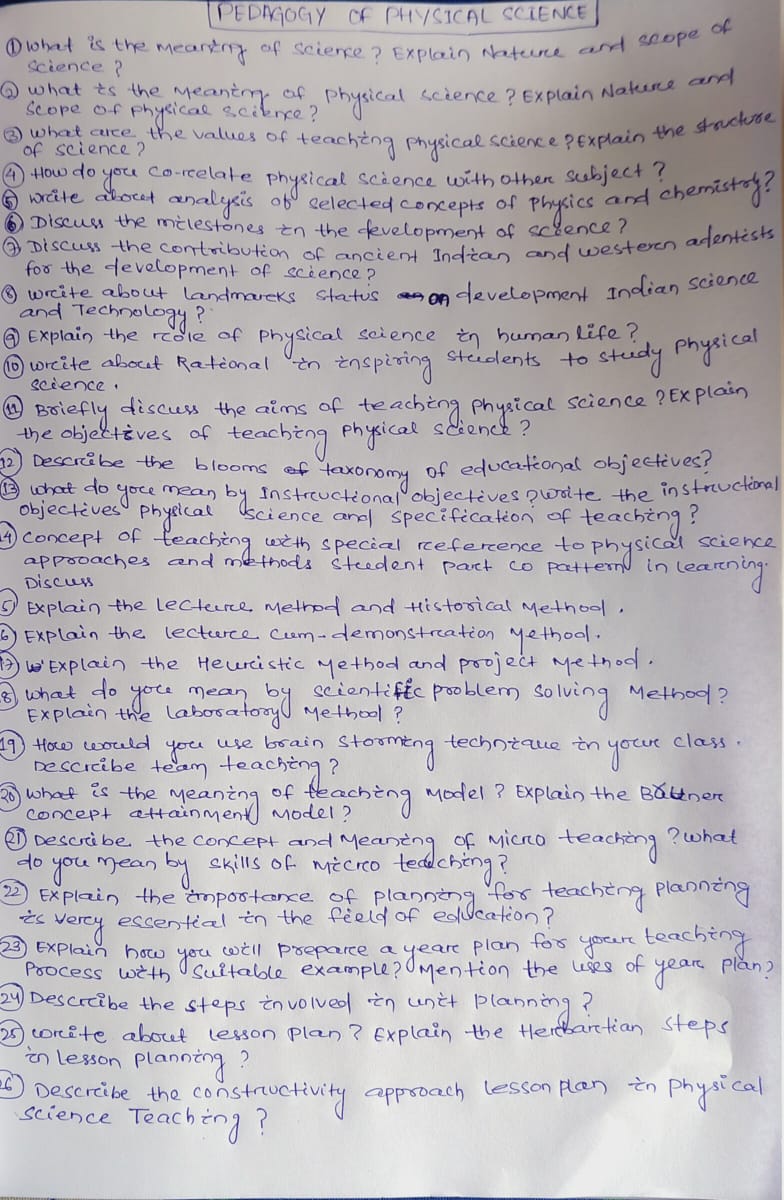 PEDAGOGY OF PHYSICAL SCIENCE
① what is the meaning of science ? Explain Nature and scope of
science ?
② what is the Meaning of physical science ? Explain Nature and
scope of physical science ?
③ what are the values of teaching physical science ? Explain the structure
of science ?
④ How do you co-relate physical science with other subject ?
⑤ write about analysis of selected concepts of physics and chemistry?
⑥ Discuss the milestones in the development of science ?
⑦ Discuss the contribution of ancient Indian and western adentists
for the development of science ?
⑧ write about landmarks status on development Indian science
and Technology ?
⑨ Explain the role of physical science in human life ?
⑩ write about Rational in inspiring students to study physical
science .
⑪ Briefly discuss the aims of teaching physical science ? Explain
the objectives of teaching physical science ?
12 Describe the blooms taxonomy of educational objectives?
⑬ what do you mean by Instructional objectives ? write the instructional
objectives physical science and specification of teaching ?
14 concept of teaching with special reference to physical science
approaches and methods student part co pattern in learning.
Discuss
5 Explain the lecture Method and Historical Method .
6 Explain the lecture cum-demonstration Method .
17 Explain the Heuristic Method and project Method .
8 what do you mean by scientific problem solving Method ?
Explain the laboratory Method ?
19 How would you use brain storming technique in your class .
Describe team teaching ?
20 what is the Meaning of teaching Model ? Explain the Bruner
concept attainment Model ?
㉑ Describe the concept and Meaning of Micro teaching ? what
do you mean by skills of Micro teaching ?
㉒ Explain the importance of planning for teaching planning
is very essential in the field of education ?
㉓ Explain how you will prepare a year plan for your teaching
Process with suitable example ? Mention the uses of year plan ?
24 Describe the steps involved in unit planning ?
25 write about lesson plan ? Explain the Herbartian steps
in lesson planning ?
26 Describe the constructivity approach lesson plan in physical
science Teaching ?